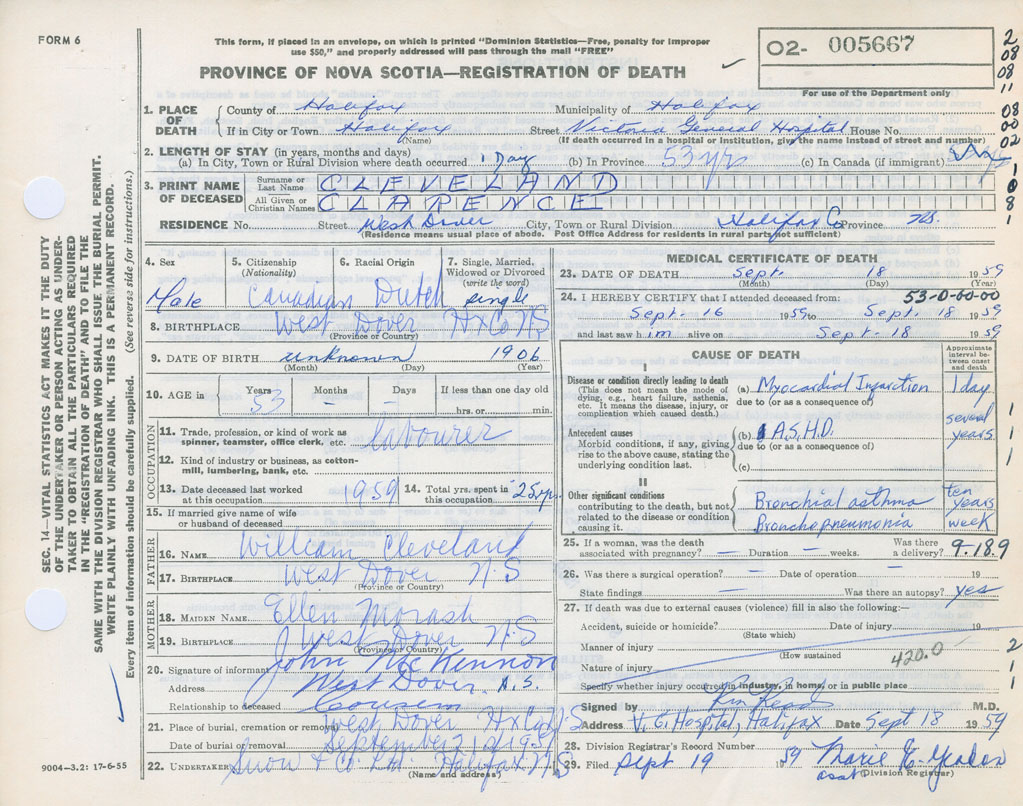 FORM 6
This form, if placed in an envelope, on which is printed "Dominion Statistics—Free, penalty for improper
use $50," and properly addressed will pass through the mail "FREE"
PROVINCE OF NOVA SCOTIA—REGISTRATION OF DEATH
02- 005667
For use of the Department only
2
08
08
11
08
00
02
1
0
8
1
SEC. 14—VITAL STATISTICS ACT MAKES IT THE DUTY
OF THE UNDERTAKER OR PERSON ACTING AS UNDER-
TAKER TO OBTAIN ALL THE PARTICULARS REQUIRED
IN THE "REGISTRATION OF DEATH" AND TO FILE THE
SAME WITH THE DIVISION REGISTRAR WHO SHALL ISSUE THE BURIAL PERMIT.
WRITE PLAINLY WITH UNFADING INK. THIS IS A PERMANENT RECORD.
Every item of information should be carefully supplied. (See reverse side for instructions.)
1. PLACE OF DEATH County of Halifax Municipality of Halifax
If in City or Town Halifax Street Victoria General Hospital House No.
(Name) (If death occurred in a hospital or institution, give the name instead of street and number)
2. LENGTH OF STAY (in years, months and days)
(a) In City, Town or Rural Division where death occurred 1 Day (b) In Province 53 yrs (c) In Canada (if immigrant)
3. PRINT NAME OF DECEASED Surname or Last Name CLEVELAND
All Given or Christian Names CLARENCE
RESIDENCE No. Street West Dover City, Town or Rural Division Halifax Co Province N.S.
(Residence means usual place of abode. Post Office Address for residents in rural parts not sufficient)
4. Sex 5. Citizenship (Nationality) 6. Racial Origin 7. Single, Married, Widowed or Divorced (write the word)
Male Canadian Dutch single
8. BIRTHPLACE West Dover Hx Co N S
(Province or Country)
9. DATE OF BIRTH unknown 1906
(Month) (Day) (Year)
10. AGE in Years Months Days If less than one day old
53 – – hrs. or min.
OCCUPATION
11. Trade, profession, or kind of work as spinner, teamster, office clerk, etc. labourer
12. Kind of industry or business, as cotton-mill, lumbering, bank, etc.
13. Date deceased last worked at this occupation 1959 14. Total yrs. spent in this occupation 25 yrs
15. If married give name of wife or husband of deceased
FATHER
16. NAME William Cleveland
17. BIRTHPLACE West Dover N.S
(Province or Country)
MOTHER
18. MAIDEN NAME Ellen Morash
19. BIRTHPLACE West Dover N.S
(Province or Country)
20. Signature of informant John McKennon
Address West Dover N.S.
Relationship to deceased Cousin
21. Place of burial, cremation or removal West Dover Hx Co N S
Date of burial or removal September 21st 1959
22. UNDERTAKER Snow & Co. Ltd. Halifax N.S
(Name and address)
9004—3.2: 17-6-55
MEDICAL CERTIFICATE OF DEATH
23. DATE OF DEATH Sept. 18 1959
(Month) (Day) (Year)
24. I HEREBY CERTIFY that I attended deceased from: 53-0-00-00
Sept. 16 1959 to Sept. 18 1959
and last saw him alive on Sept. 18 1959
CAUSE OF DEATH
Approximate interval between onset and death
I
Disease or condition directly leading to death
(This does not mean the mode of dying, e.g., heart failure, asthenia, etc. It means the disease, injury, or complication which caused death.)
(a) Myocardial Infarction 1 day
due to (or as a consequence of)
Antecedent causes
Morbid conditions, if any, giving rise to the above cause, stating the underlying condition last.
(b) A.S.H.D. several years
due to (or as a consequence of)
(c)
1
1
1
II
Other significant conditions
contributing to the death, but not related to the disease or condition causing it.
Bronchial asthma ten years
Bronchopneumonia week
25. If a woman, was the death associated with pregnancy? — Duration — weeks. Was there a delivery? 9-18.9
26. Was there a surgical operation? – Date of operation – 19
State findings — Was there an autopsy? yes
27. If death was due to external causes (violence) fill in also the following:—
Accident, suicide or homicide? Date of injury 19
(State which)
Manner of injury
(How sustained)
420.0
Nature of injury
Specify whether injury occurred in industry, in home, or in public place
2
1
1
Signed by M.D.
Address V. G. Hospital, Halifax Date Sept 18 1959
28. Division Registrar's Record Number
29. Filed Sept 19 59 Marie E.
asst (Division Registrar)